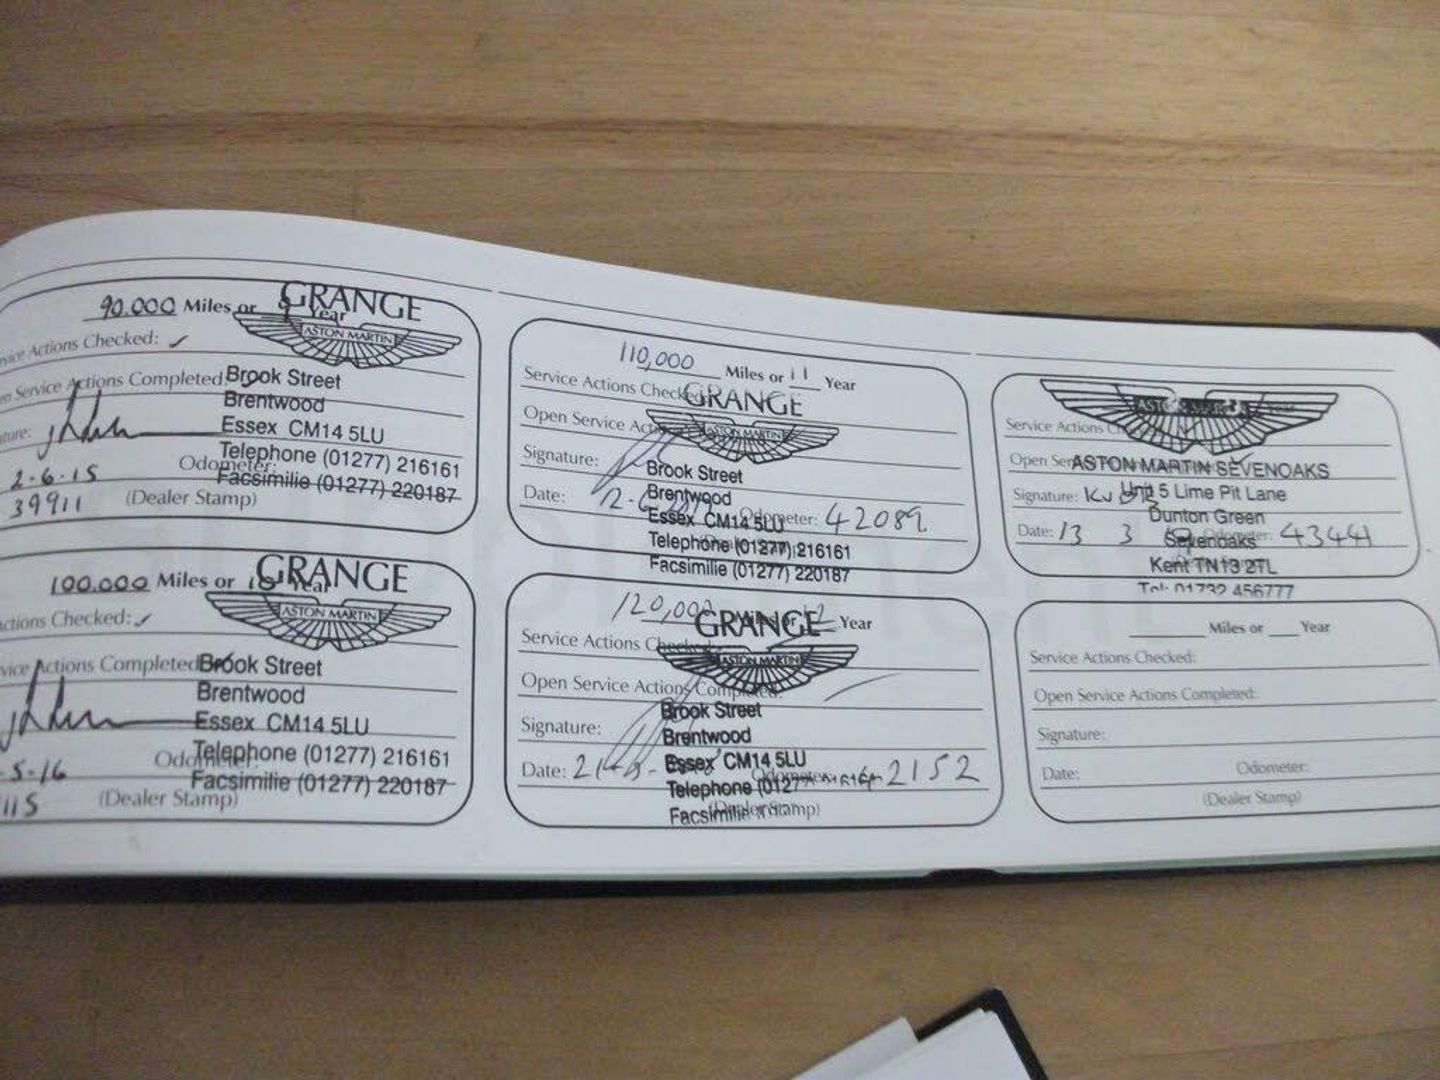 90.000 Miles or 9 Year
GRANGE
ASTON MARTIN
Service Actions Checked: ✓
Open Service Actions Completed:
Brook Street
Brentwood
Essex CM14 5LU
Telephone (01277) 216161
Facsimilie (01277) 220187
2-6-15
Odometer:
39911
(Dealer Stamp)
100.000 Miles or 10 Year
GRANGE
ASTON MARTIN
Actions Checked: ✓
Actions Completed
Brook Street
Brentwood
Essex CM14 5LU
Telephone (01277) 216161
Facsimilie (01277) 220187
5-16
115
(Dealer Stamp)
110,000 Miles or 11 Year
Service Actions Checked
GRANGE
ASTON MARTIN
Open Service
Signature:
Brook Street
Brentwood
Essex CM14 5LU
Telephone (01277) 216161
Facsimilie (01277) 220187
Date: 12-6
Odometer: 42089
120,000 or 12 Year
GRANGE
ASTON MARTIN
Service Actions Checked
Open Service Actions Completed:
Signature:
Brook Street
Brentwood
Essex CM14 5LU
Telephone (0127
Facsimilie
Date: 21
42152
(Dealer Stamp)
Year
Service Actions
Open
ASTON MARTIN SEVENOAKS
Signature:
Unit 5 Lime Pit Lane
Dunton Green
Sevenoaks
Kent TN13 2TL
Tel: 01732 456777
Date: 13 3 19
43441
Miles or Year
Service Actions Checked:
Open Service Actions Completed:
Signature:
Date: Odometer:
(Dealer Stamp)